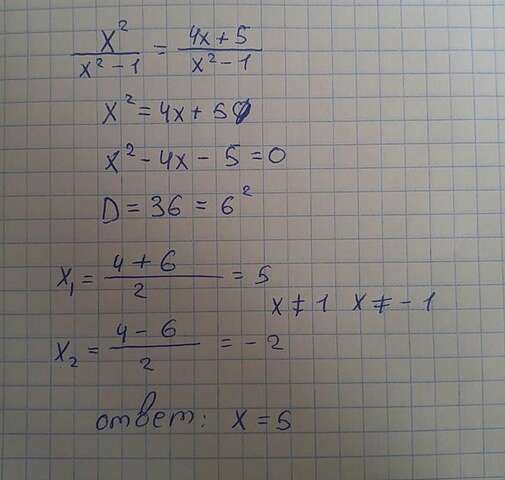 x² / (x² - 1) = (4x + 5) / (x² - 1)
x² = 4x + 5
x² - 4x - 5 = 0
D = 36 = 6²
x₁ = (4 + 6) / 2 = 5
x ≠ 1 x ≠ - 1
x₂ = (4 - 6) / 2 = - 2
ответ: x = 5